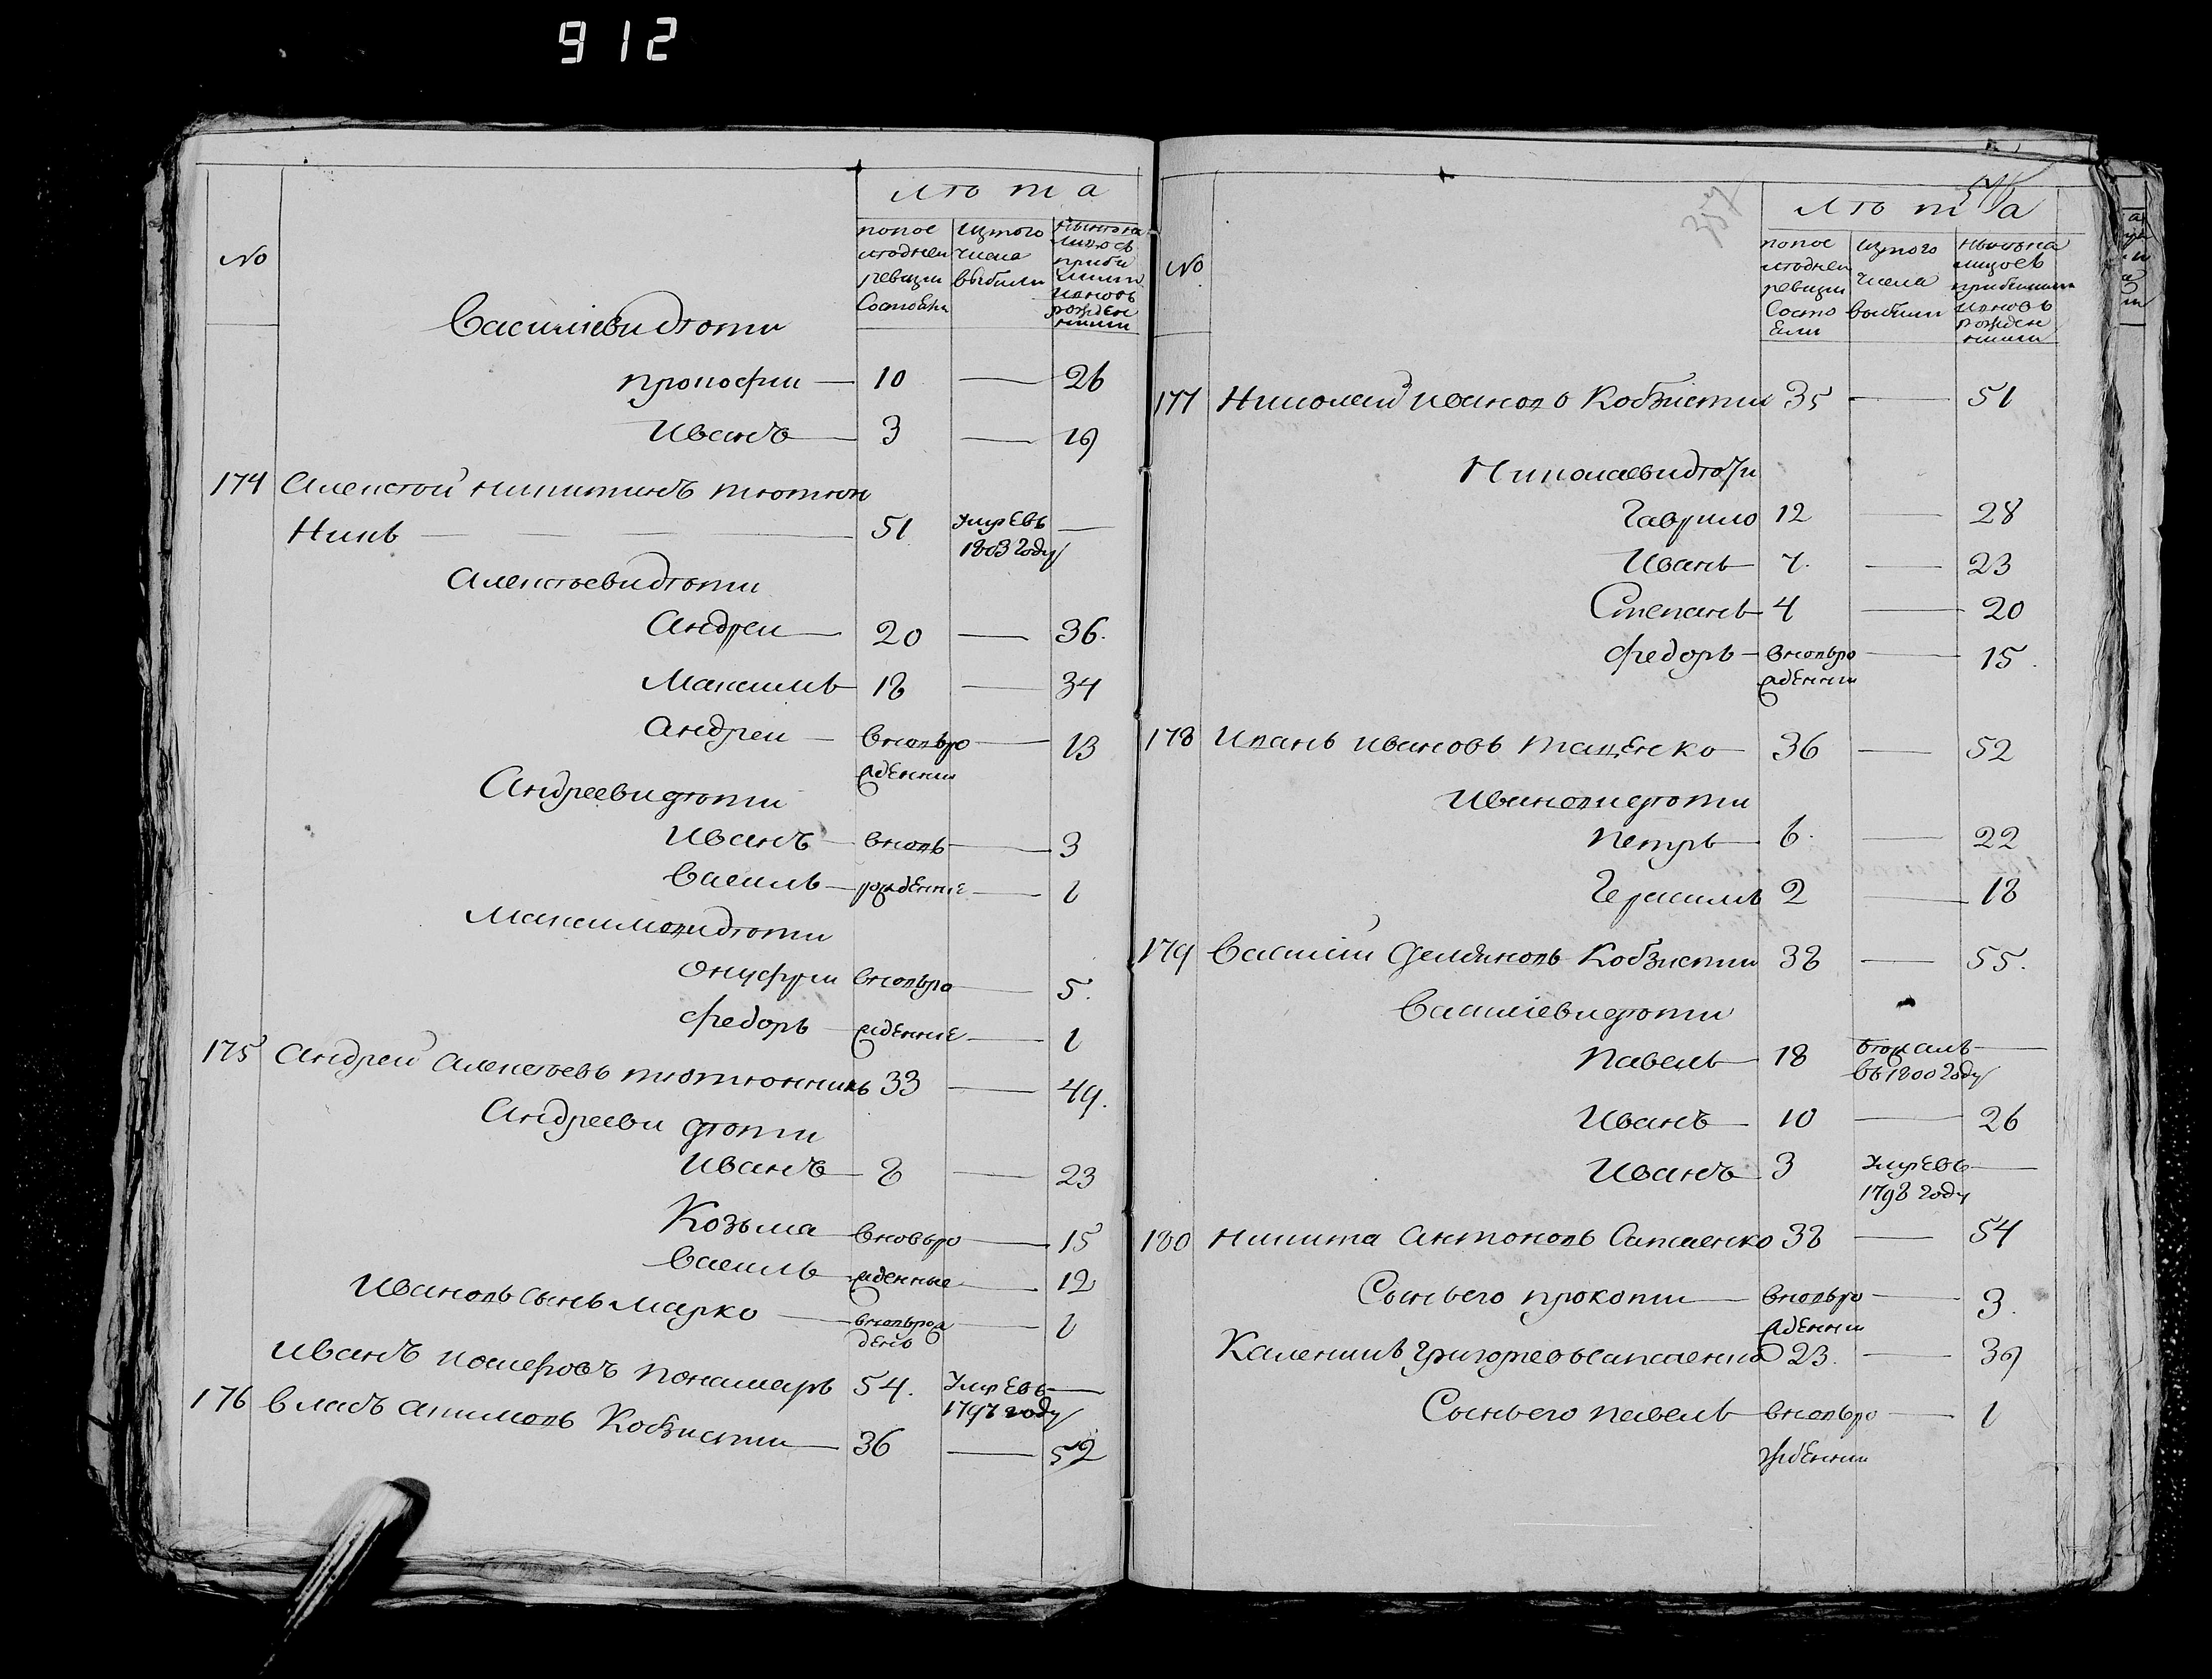 912
лѣта
№
попос
лѣдней
ревизии
Состоѣли
изтого
числа
выбили
нынѣна
лицос
приби
лими
ивновь
рожден
ними
Василіеви дѣти
прокофии — 10 — 26
Иванъ — 3 — 19
174 Алексѣй никитинъ тютюн
Никъ — — — 51 умрѣвъ —
1803 году
Алексѣеви дѣти
Андреи — 20 — 36.
Максимъ 18 — 34
Андреи — вновьро — 13
жденни
Андрееви дѣти
Иванъ — вновь — 3
Василь — рожденние — 1
Максимови дѣти
Онуфрии вновьро — 5.
федоръ — жденние — 1
175 Андрей Алексѣевъ тютюнникъ 33 — 49.
Андрееви дѣти
Иванъ — 8 — 23
Козьма — вновьро — 15
Василь — жденные — 12
Ивановъ сынъ марко — вновьрож — 1
денъ
Иванъ пономарь 54. умрѣвъ —
1797 году
176 власъ Кобзисти — 36 — 52
357
лѣта
№
попос
лѣднеи
ревизии
Состо
ели
изтого
числа
выбили
нынѣна
лицоеъ
прибилими
ивновь
рожден
ними
177 Николай ивановъ Кобзистии 35 — 51
Николаеви дѣти
Гаврило 12 — 28
Иванъ — 7. — 23
Степанъ — 4 — 20
федоръ — вновьро — 15.
жденни
178 Иванъ ивановъ таценко — 36 — 52
Иванови дѣти
петръ — 6. — 22
Герасимъ 2 — 18
179 Василіи Демяновъ Кобзистии 38 — 55.
Василіеви дѣти
павелъ — 18 —
въ 1800 году
Иванъ — 10 — 26
Иванъ — 3 умрѣвъ —
1798 году
180 никита Антоновъ 38 — 54
Сынъ его прокопи — вновьро — 3.
жденни
Каленикъ григорѣевъ 23. — 39
Сынъ его павелъ — вновьро — 1
жденни